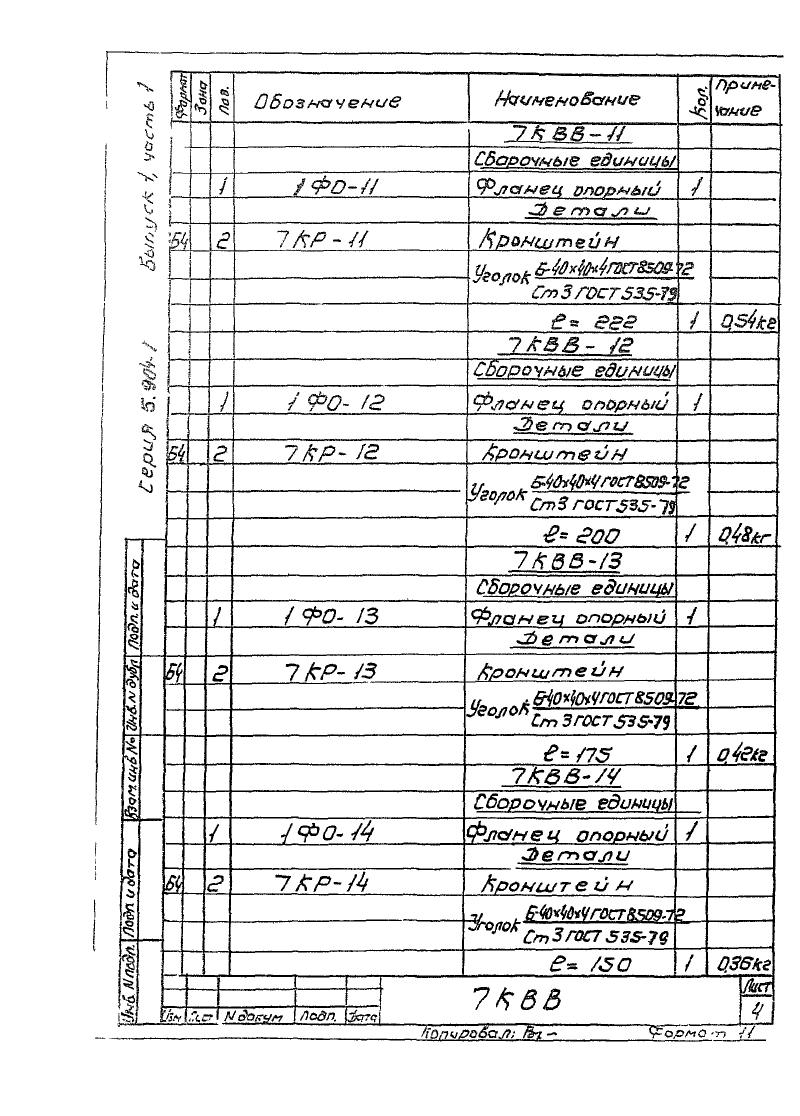 Серия 5.904-1 Выпуск 1, часть 1
Формат Зона Поз. Обозначение Наименование Кол. Приме-
чание
7КВВ-11
Сборочные единицы
1 1ФО-11 Фланец опорный 1
Детали
Б4 2 7КР-11 Кронштейн
Уголок Б-40х40х4 ГОСТ 8509-72
Ст3 ГОСТ 535-79
ℓ= 222 1 0,54кг
7КВВ-12
Сборочные единицы
1 1ФО-12 Фланец опорный 1
Детали
Б4 2 7КР-12 Кронштейн
Уголок Б-40х40х4 ГОСТ 8509-72
Ст3 ГОСТ 535-79
ℓ=200 1 0,48кг
7КВВ-13
Сборочные единицы
1 1ФО-13 Фланец опорный 1
Детали
Б4 2 7КР-13 Кронштейн
Уголок Б-40х40х4 ГОСТ 8509-72
Ст3 ГОСТ 535-79
ℓ=175 1 0,42кг
7КВВ-14
Сборочные единицы
1 1ФО-14 Фланец опорный 1
Детали
Б4 2 7КР-14 Кронштейн
Уголок Б-40х40х4 ГОСТ 8509-72
Ст3 ГОСТ 535-79
ℓ= 150 1 0,36кг
Инв. N подл. Подп. и дата Взам. инв. № Инв. N дубл. Подп. и дата
Изм Лист N докум Подп. Дата
7КВВ
Лист
4
Копировал:
Формат 11